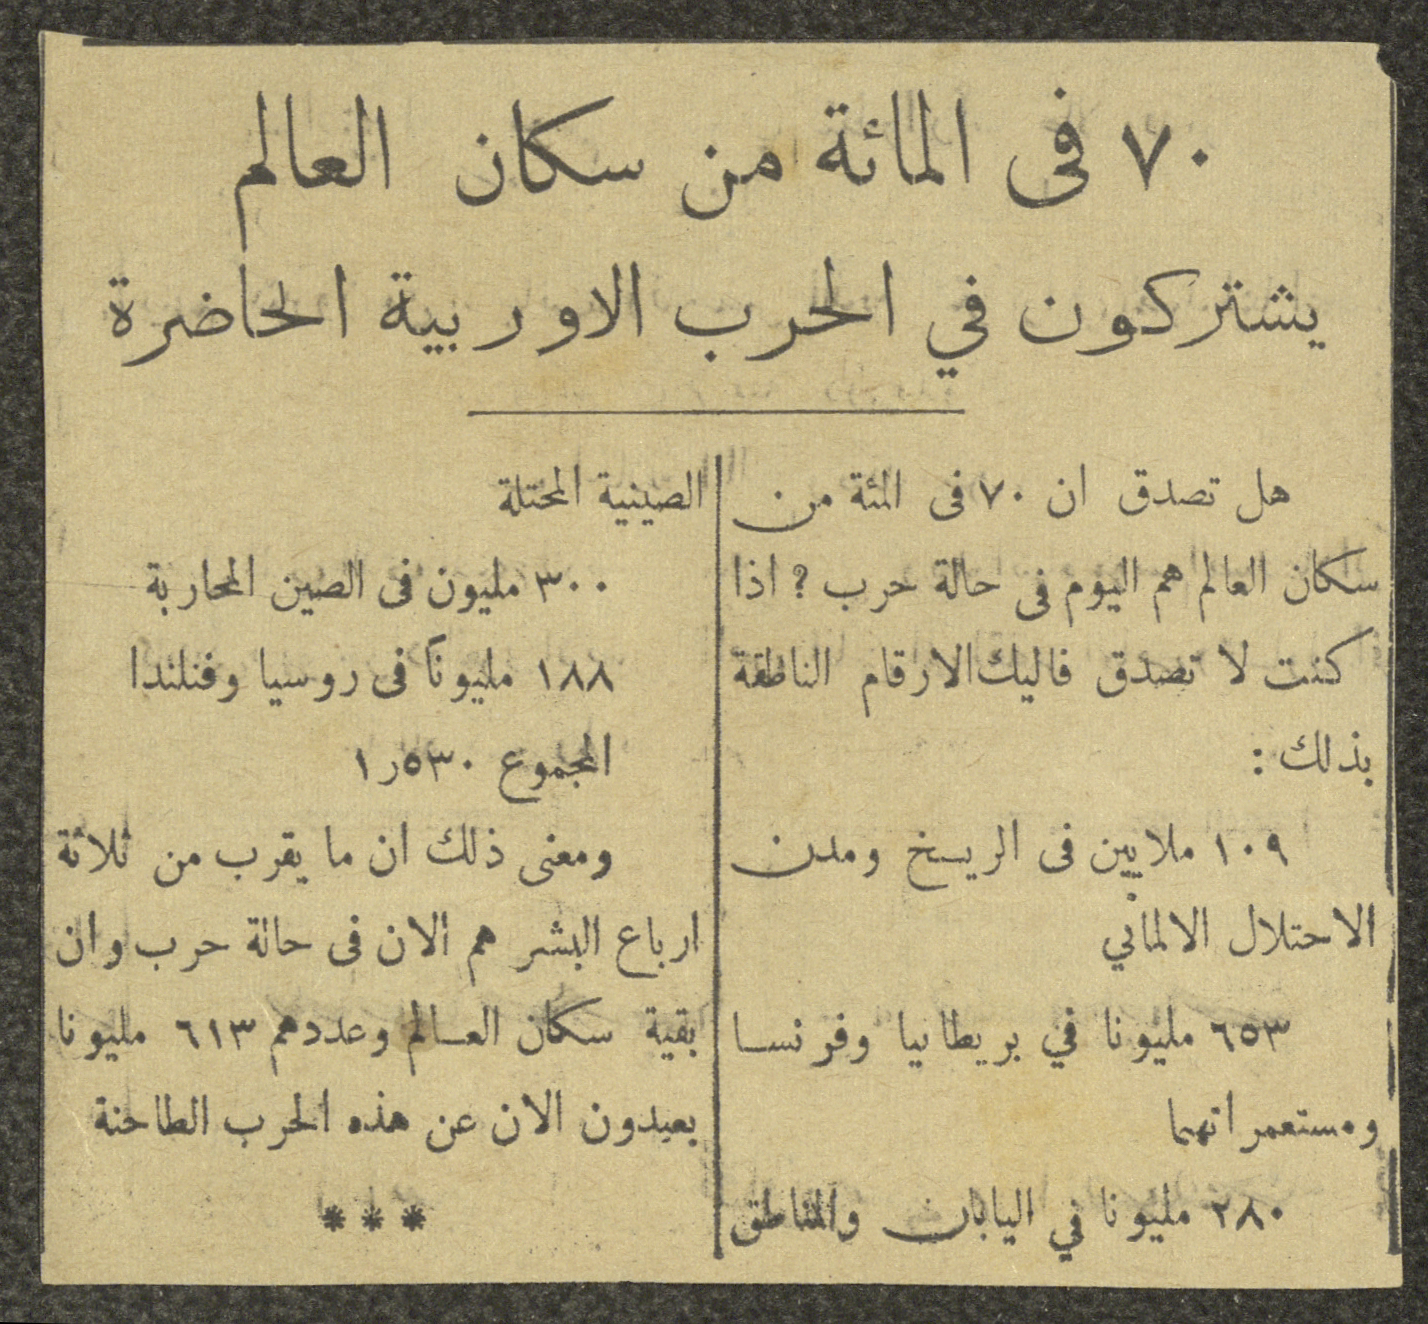 ٧٠ فى المائة من سكان العالم
يشتركون في الحرب الاوربية الحاضرة
هل تصدق ان ٧٠ فى المئة من
سكان العالم هم اليوم فى حالة حرب ? اذا
كنت لا تصدق فاليك الارقام الناطقة
بذلك :
١٠٩ ملايين فى الريسخ ومدن
الاحتلال الالماني
٦٥٣ مليونا في بريطانيا وفرنسا
ومستعمراتهما
٢٨٠ مليونا في اليابان والمناطق
الصينية المحتلة
٣٠٠ مليون فى الصين المحاربة
١٨٨ مليوناً فى روسيا وفنلندا
المجموع ٥٣٠ر١
ومعنى ذلك ان ما يقرب من ثلاثة
ارباع البشر هم الان فى حالة حرب وان
بقية سكان العالم وعددهم ٦١٣ مليونا
بعيدون الان عن هذه الحرب الطاحنة
***